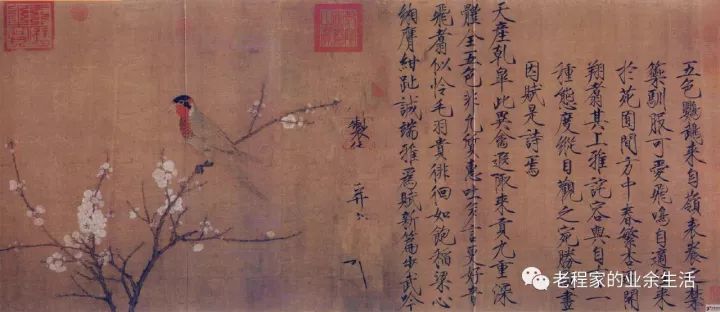 五色鸚鵡來自嶺表養之禁
籞馴服可愛飛鳴自適往來
於苑囿間方中春繁杏遍開
翔翥其上雅詫容與自有一
種態度縱目觀之宛勝圖畫
因賦是詩焉
天產乾皋此異禽遐陬來貢九重深
體全五色非凡質惠吐多言更好音
飛翥似憐毛羽貴徘徊如飽稻粱心
緗膺紺趾誠端雅為賦新篇步武吟
製
并
老程家的业余生活